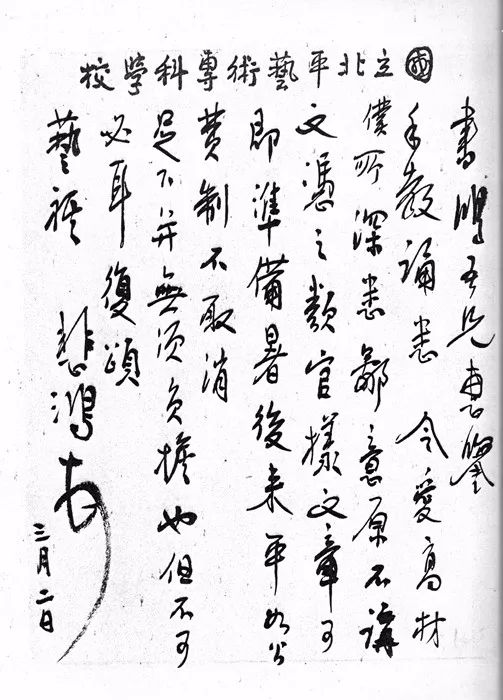 國立北平藝術專科學校
書鴻吾兄惠鑒
手教誦悉 令愛高材
僕所深悉鄙意原不講
文憑之類官樣文章可
即準備暑後来平如公
費制不取消
足下并無須負擔也但不可
必耳復頌
藝祺 悲鴻
三月二日